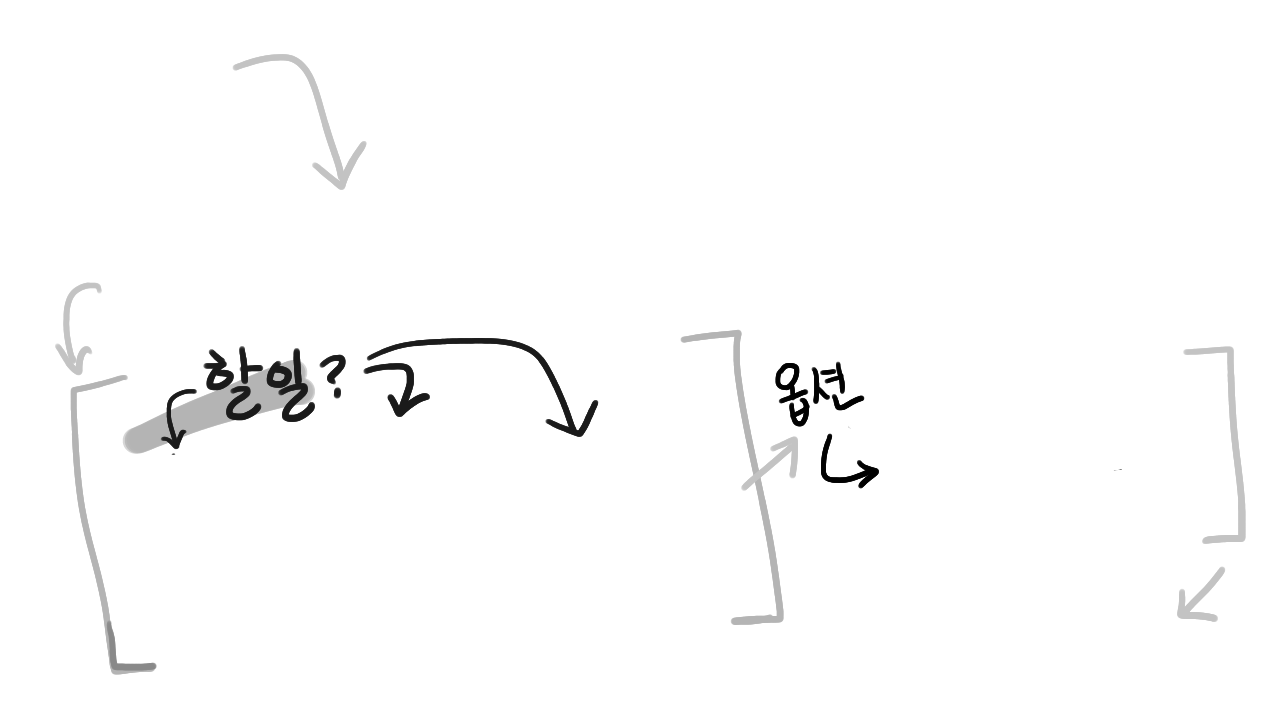 할일?
옵션